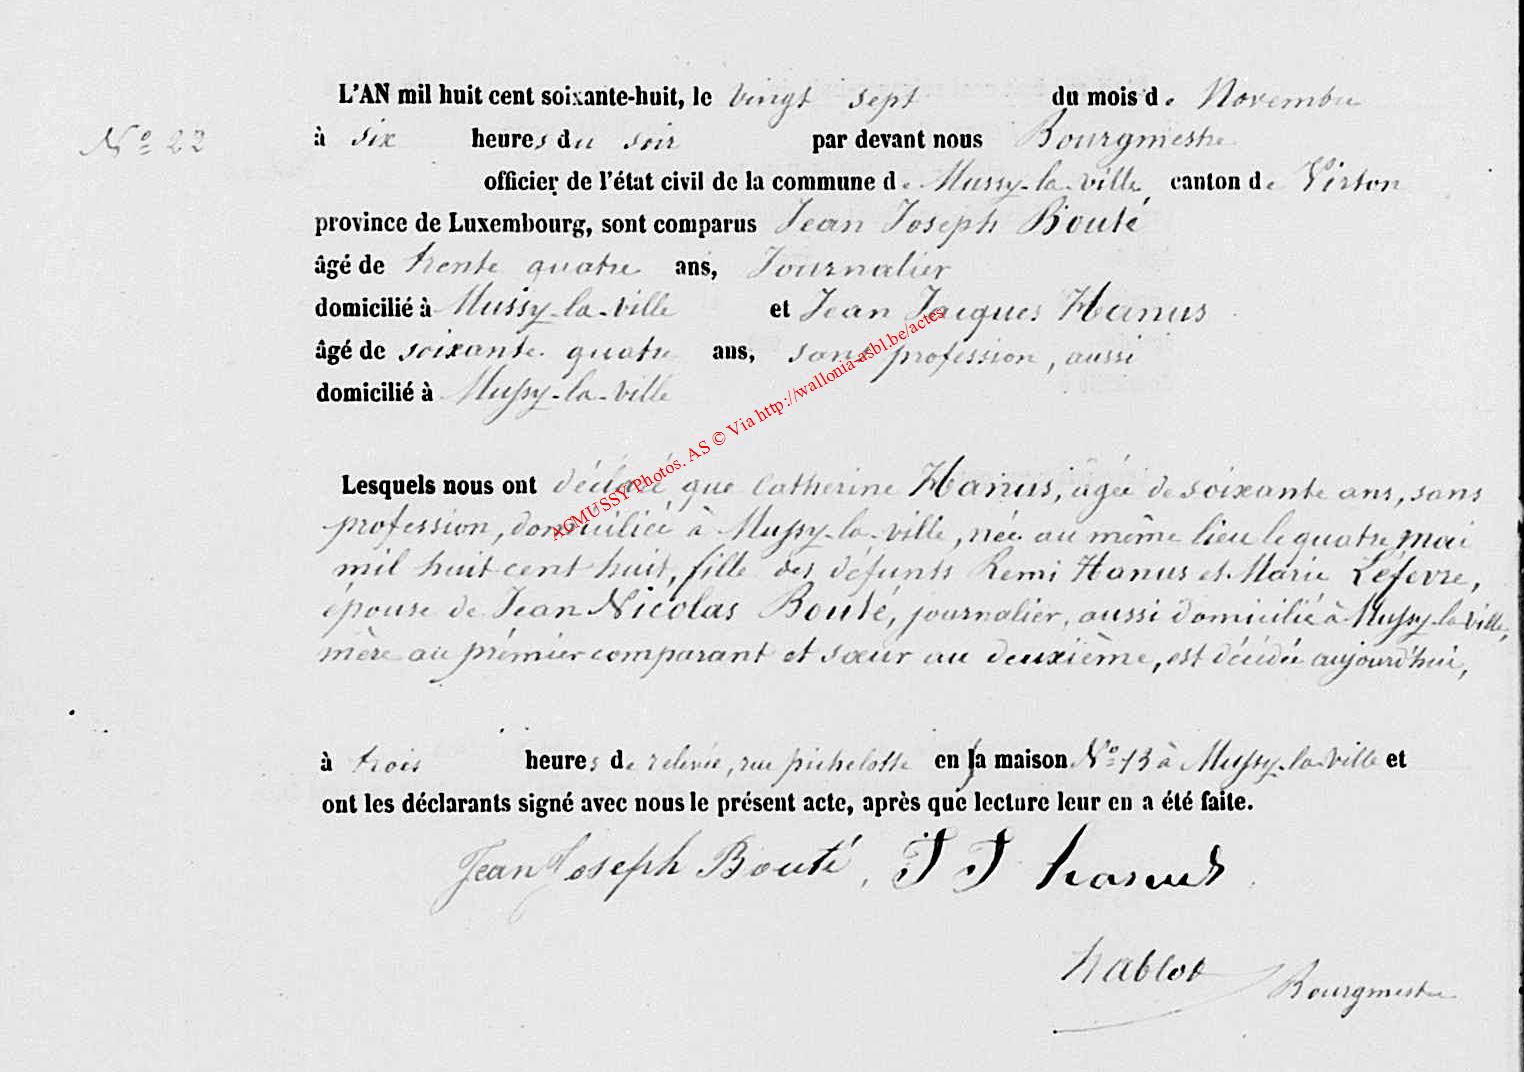 L'AN mil huit cent soixante-huit, le vingt sept du mois de Novembre
N° 22 à six heures du soir par devant nous Bourgmestre
officier de l'état civil de la commune de Mussy-la-ville, canton de Virton
province de Luxembourg, sont comparus Jean Joseph Bouté
âgé de trente quatre ans, Journalier
domicilié à Mussy-la-ville et Jean Jacques Hanus
âgé de soixante quatre ans, sans profession, aussi
domicilié à Mussy-la-ville
Lesquels nous ont déclaré que Catherine Hanus, agée de soixante ans, sans
profession, domiciliée à Mussy-la-ville, née au même lieu le quatre mai
mil huit cent huit, fille des défunts Remi Hanus et Marie Lefevre,
épouse de Jean Nicolas Bouté, journalier, aussi domicilié à Mussy-la-ville,
mère au prémier comparant et sœur au deuxième, est décédée aujourd'hui,
à trois heures de relevée, rue pichelotte en sa maison N° 13 à Mussy-la-ville et
ont les déclarants signé avec nous le présent acte, après que lecture leur en a été faite.
Jean Joseph Bouté, J J hanus
hablot Bourgmestre
ACMUSSY Photos. AS © Via http://wallonia-asbl.be/actes